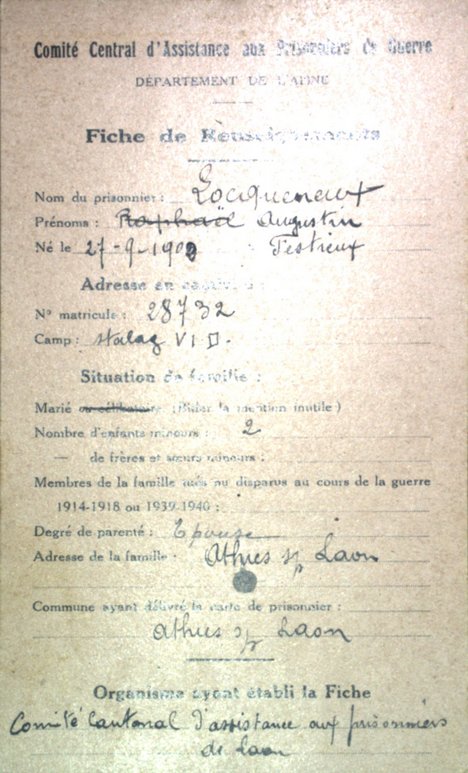 Comité Central d'Assistance aux Prisonniers de Guerre
DÉPARTEMENT DE L'AISNE
Fiche de Renseignements
Nom du prisonnier : Locqueneux
Prénoms : Raphaël Augustin
Né le 27-9-1909
Adresse en captivité :
N° matricule : 28732
Camp : stalag VI D.
Situation de famille :
Marié ou célibataire (Biffer la mention inutile)
Nombre d'enfants mineurs : 2
— de frères et sœurs mineurs :
Membres de la famille tués ou disparus au cours de la guerre
1914-1918 ou 1939-1940 :
Degré de parenté : Epouse
Adresse de la famille : Athies s/ Laon
Commune ayant délivré la carte de prisonnier :
Athies s/ Laon
Organisme ayant établi la Fiche
Comité Cantonal d'assistance aux prisonniers
de Laon